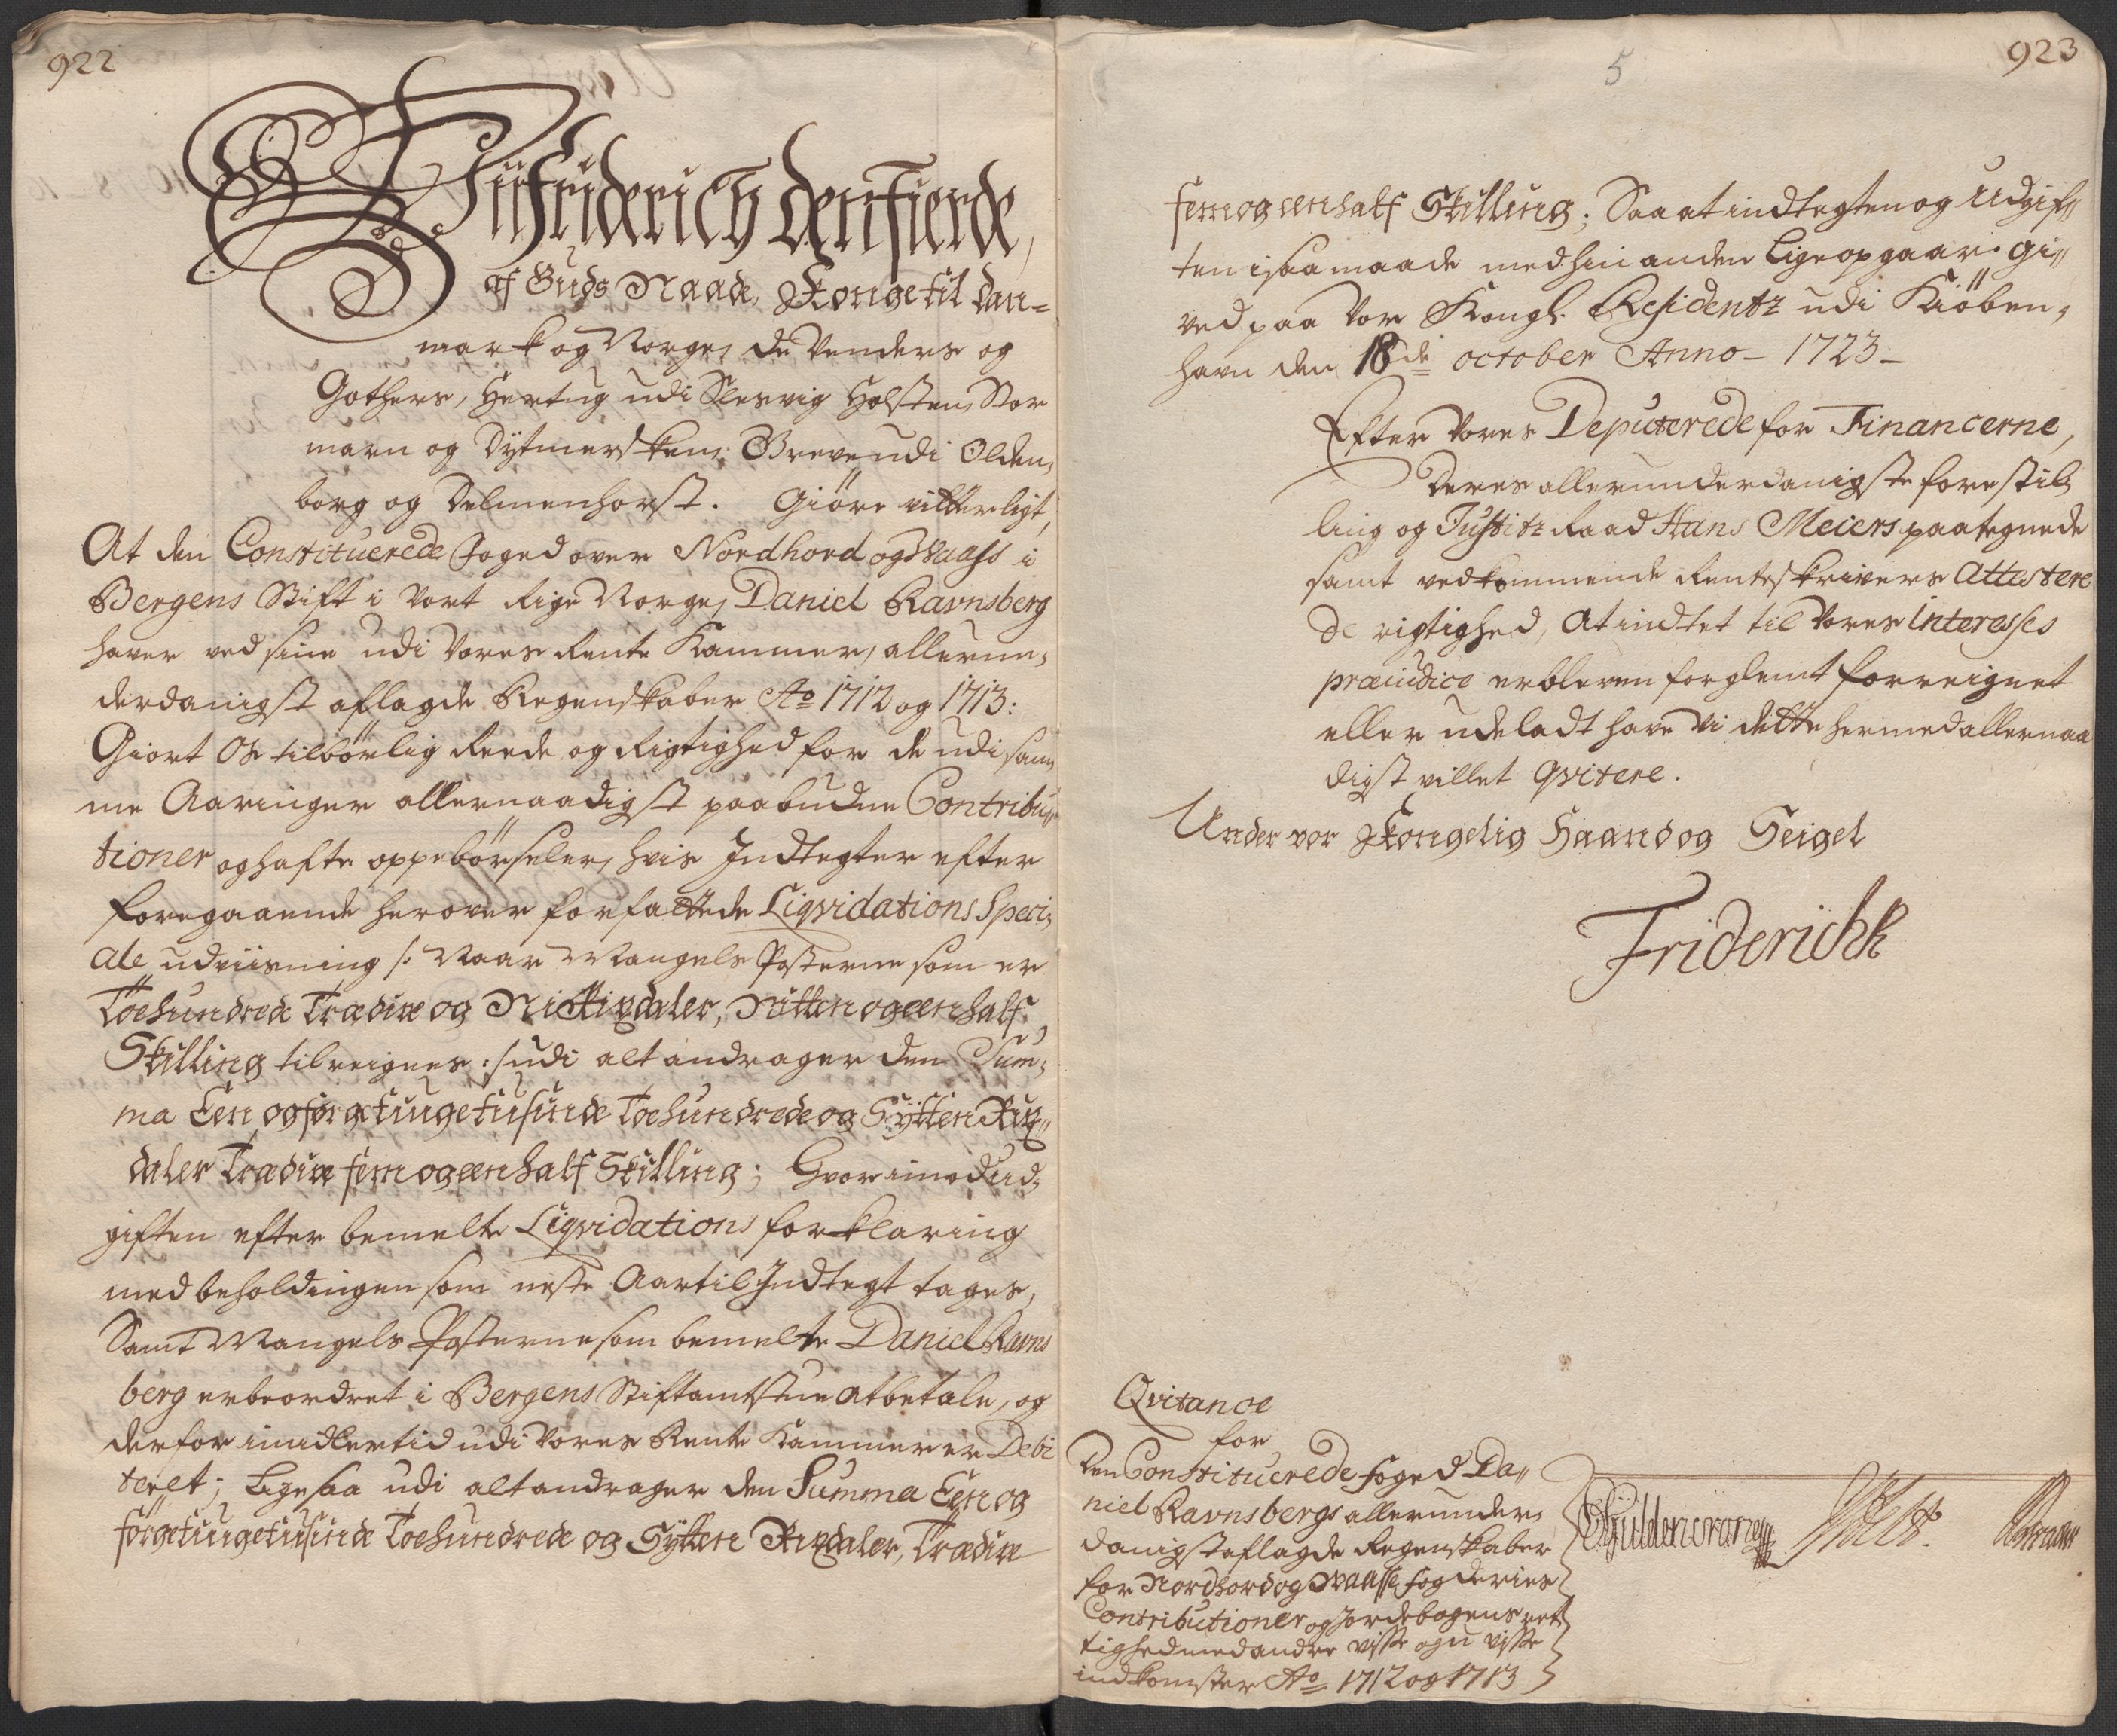 922
Vii Friderich den Fierde,
af Guds Naade, Konge til Dan=
mark og Norge, de Venders og
Gothers, Hertug udi Slesvig Holsten Stor
marn og Dytmersken, Greve udi Olden,
borg og Delmenhorst. Giöre vitterligt,
At den Constituerede Foged over Nordhord og Waass i
Bergens Stift i Vort Rige Norge, Daniel Ravnsberg
haver ved sine udi Vores Rente Kammer, allerun,
derdanigst aflagde Regenskaber Ao 1712 og 1713:
Giort Os tilbörlig Reede og Rigtighed for de udi sam,
me Aaringer allernaadigst paabudne Contribu,,
tioner og hafte oppebörseler, hvis Indtegter efter
foregaaende herover forfattede Liqvidations Speci,
ale udviisning /: Naar Mangels Posterne som er
Toehundrede Tredive og Ni Rixdaler, Nitten og een half
Skilling tilreignes :/ udi alt andrager den Sum,
ma Een og förgetiuge tusinde Toehundrede og Sytten Rix,,
daler Tredive fem og een half Skilling; Hvorimod ud,
giften efter bemelte Liqvidations forklaring
med beholdingen som neste Aar til Indtegt tages,
Samt Mangels Posterne som bemelte Daniel Ravns
berg er beordret i Bergens Stiftamtstue at betale, og
derfor imidlertid udi Vores Rente Kammer er Debi
teret; Ligesaa udi alt andrager den Summa Een og
förgetiuge tusinde Toehundrede og Sytten Rixdaler, Tredive
5
923
fem og een half Skilling; Saa at indtegten og Udgif,,
ten i saa maade med hinanden Lige opgaar. Gi,,
ved paa Vor Kongl. Residentz udi Kiöben,
havn den 18de october Anno - 1723 -
Efter Vores Deputerede for Financerne,
Deres allerunderdanigste forestil,
ling og Justitz Raad Hans Meiers paategnede
samt vedkommende Renteskrivers Attestere
de rigtighed, At indtet til Vores Interesses
præiudice er bleven forglemt forreignet
eller udeladt have Vi dette hermed allernaa
digst villet qvitere.
Under vor Kongelig Haand og Seigel
Friderich R
Qvitance
for
Den Constituerede foged Da,,
niel Ravnsbergs allerunder,
danigst aflagde Regenskaber
for Nordhord og Waasse fogderies
Contributioner og Jordebogens ret
tighed med andre visse og u visse
indkomster Ao 1712 og 1713
Gÿldencrone